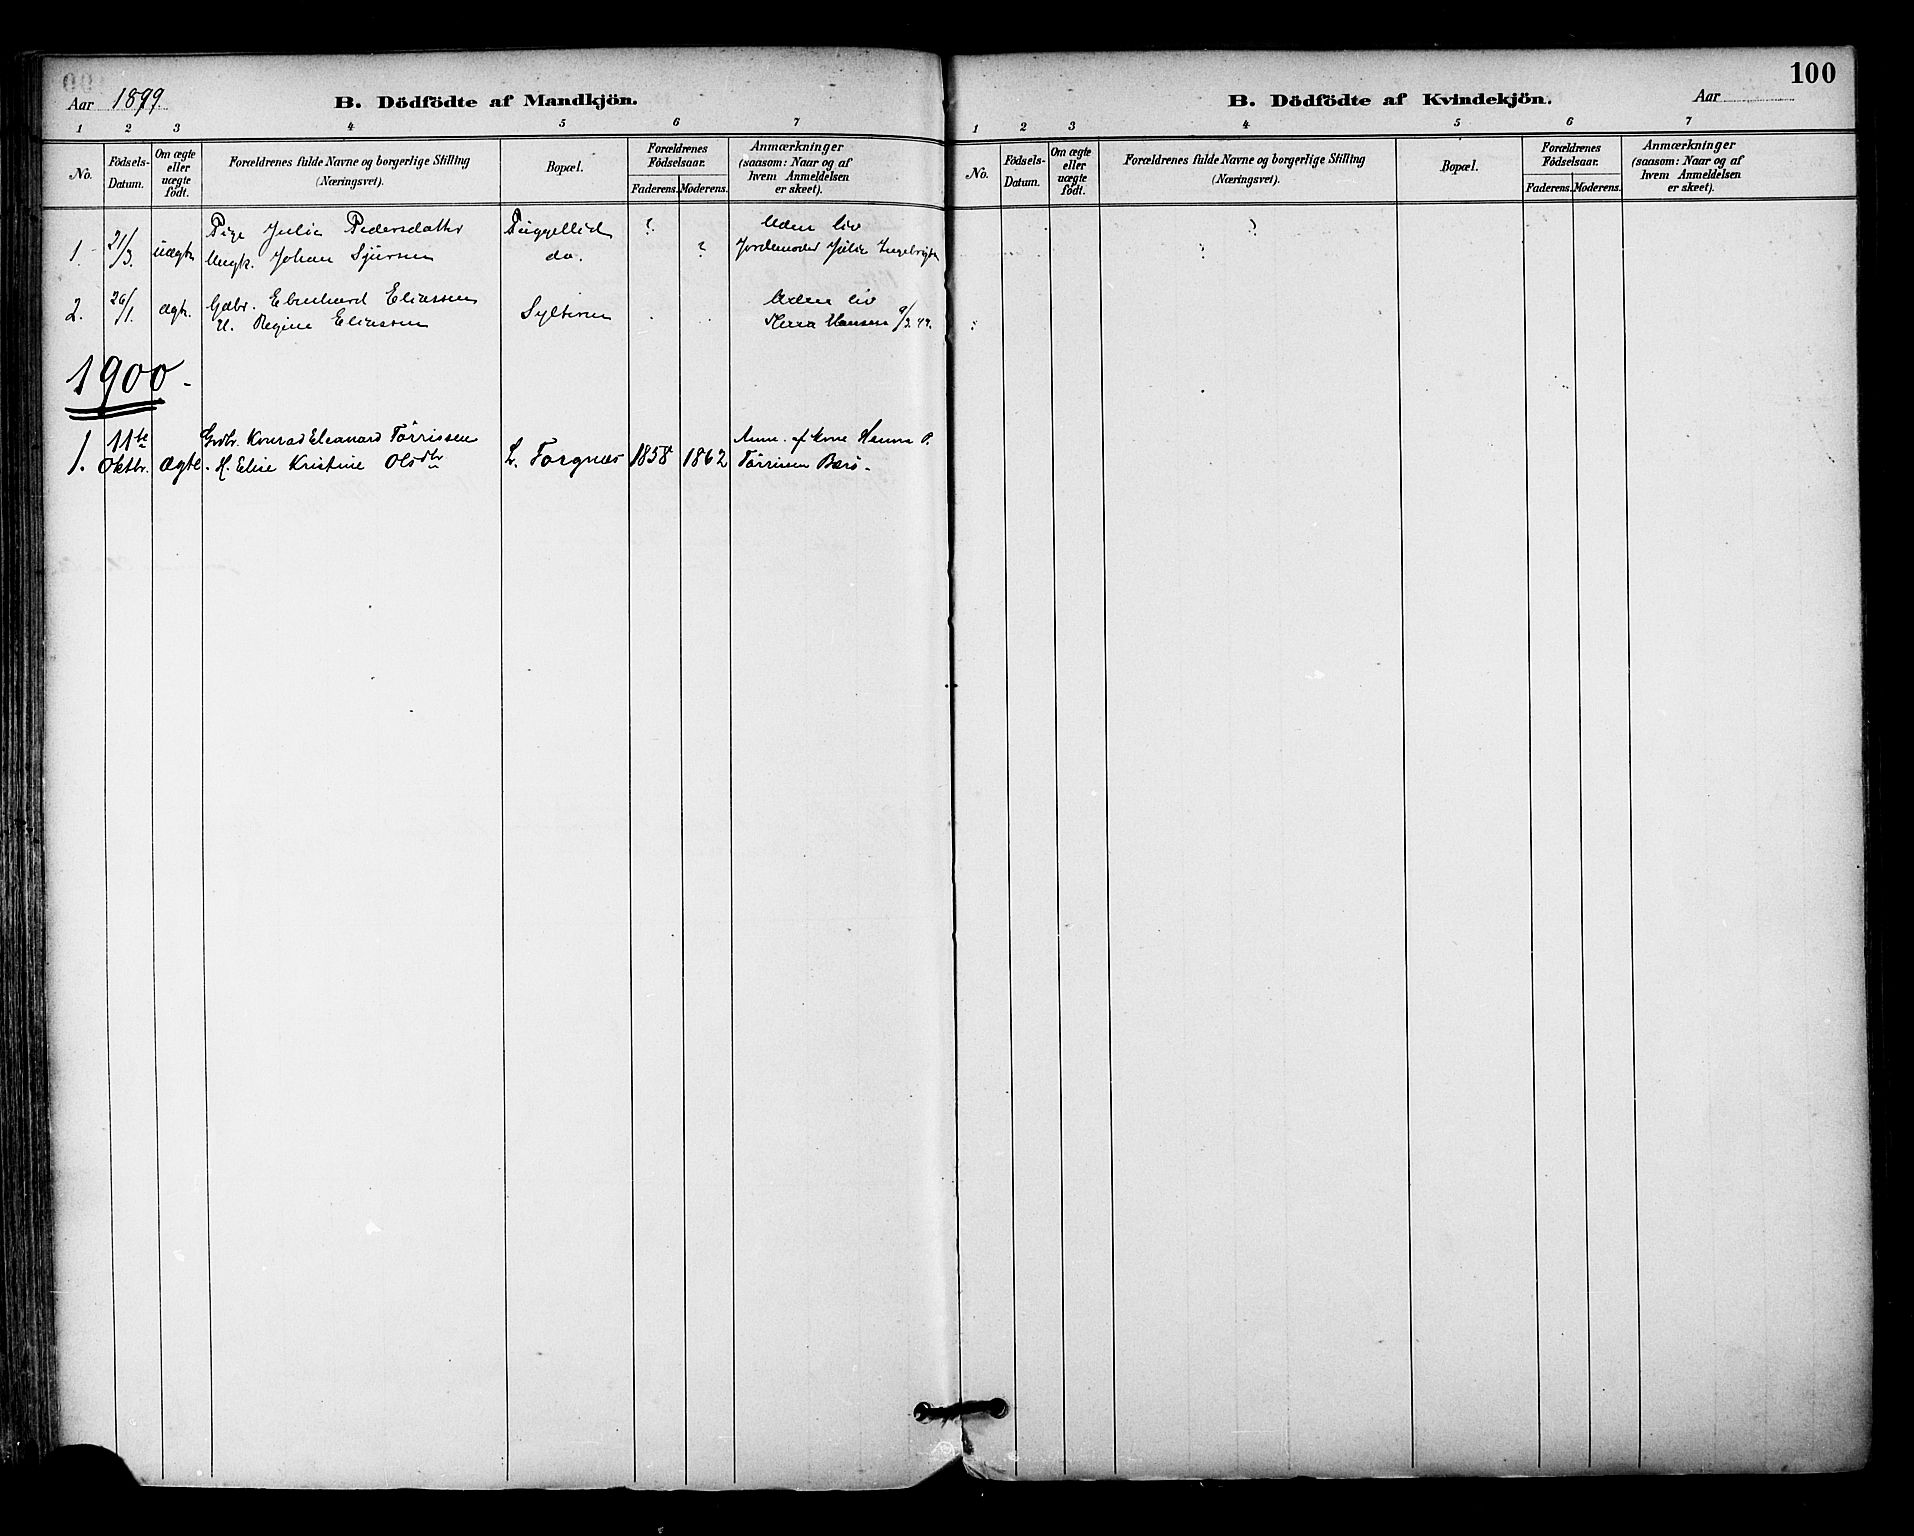 Aar 1899.
B. Dödfödte af Mandkjön.
1 2 3 4 5 6 7
No. Födsels-Datum. Om ægte eller uægte födt. Forældrenes fulde Navne og borgerlige Stilling (Næringsvei). Bopæl. Forældrenes Födselsaar. Faderens. Moderens. Anmærkninger (saasom: Naar og af hvem Anmeldelsen er skeet).
1. 21/3. uægte Pige Julie Pedersdatter ? Uden liv
Ungk. Johan Sjursen do. ? Jordemoder Julie
2. 26/1. ægte. Gdbr. Eberhard Eliassen Uden liv
H. Regine Eliassen Hansen
1900.
1. 11te Oktbr. ægte. Grdbr. Konrad Eleanard Törrissen L. Forgnæs 1858 1862 Anm. af Kone Hanna P.
H. Elise Kristine Olsdtr Törrissen
100
B. Dödfödte af Kvindekjön.
Aar
1 2 3 4 5 6 7
No. Födsels-Datum. Om ægte eller uægte födt. Forældrenes fulde Navne og borgerlige Stilling (Næringsvei). Bopæl. Forældrenes Födselsaar. Faderens. Moderens. Anmærkninger (saasom: Naar og af hvem Anmeldelsen er skeet).